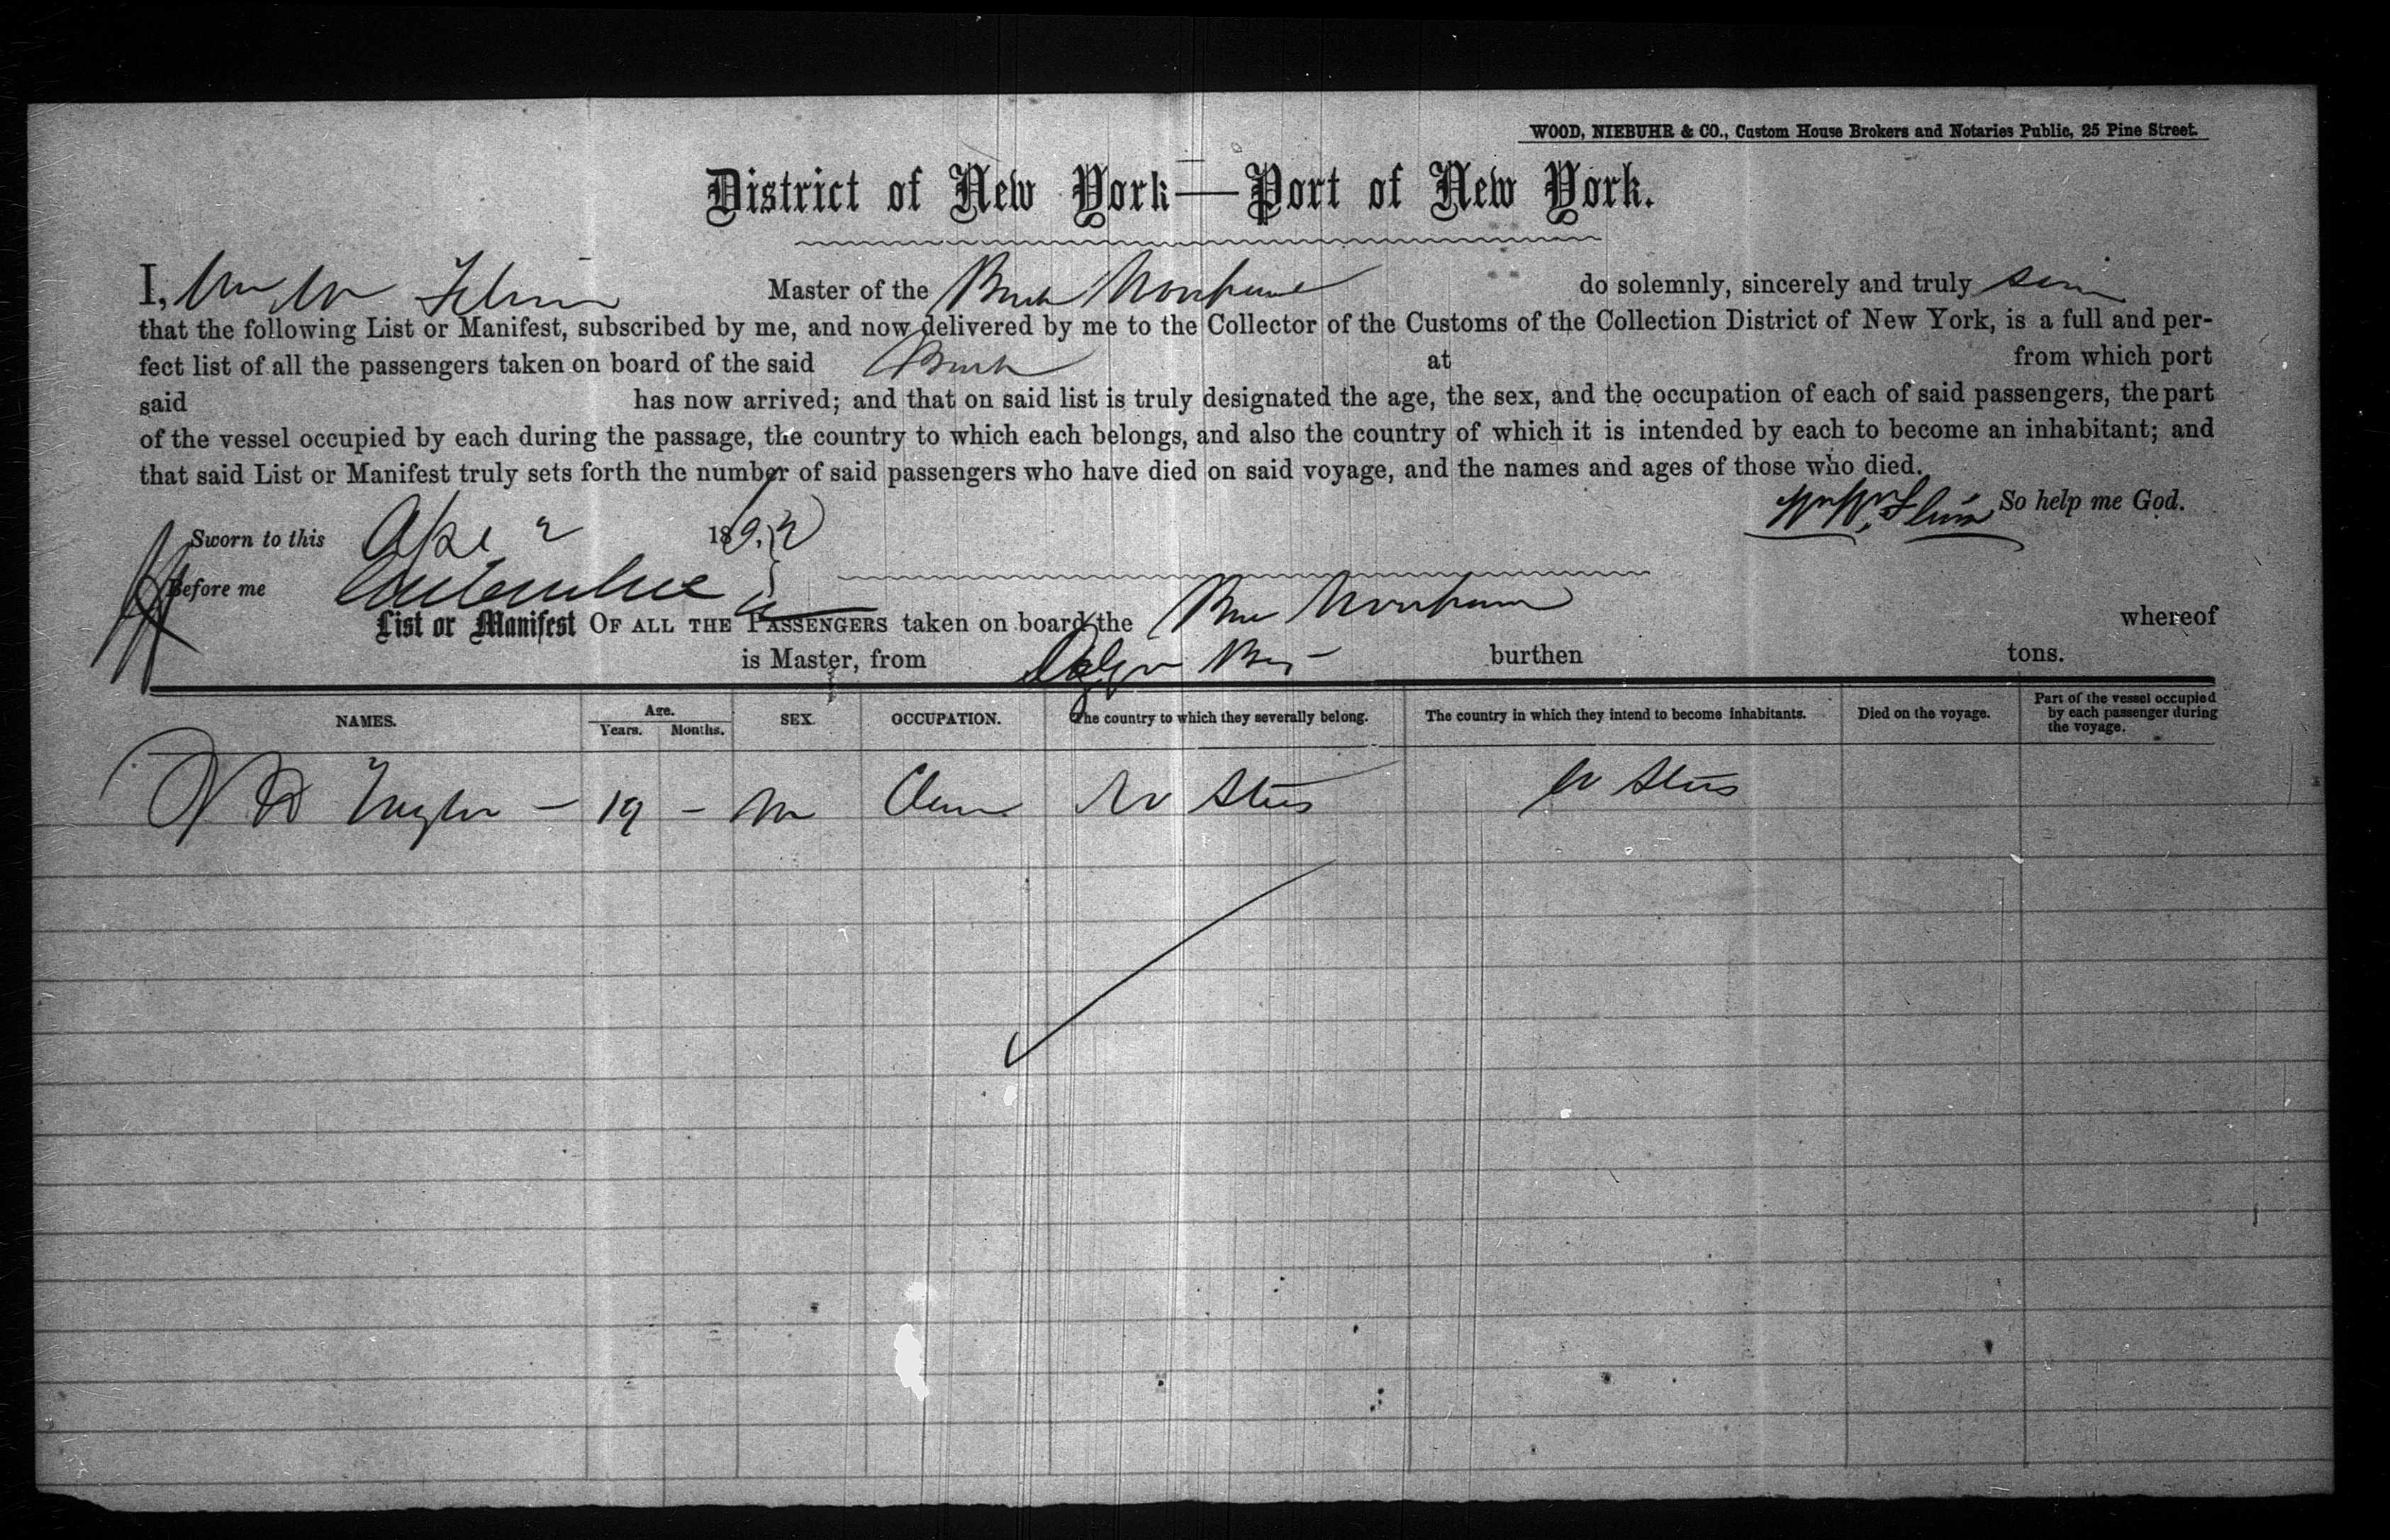 WOOD, NIEBUHR & CO., Custom House Brokers and Notaries Public, 25 Pine Street.
District of New York—Port of New York.
I, Wm W Master of the Bark do solemnly, sincerely and truly
that the following List or Manifest, subscribed by me, and now delivered by me to the Collector of the Customs of the Collection District of New York, is a full and per-
fect list of all the passengers taken on board of the said Bark at from which port
said has now arrived; and that on said list is truly designated the age, the sex, and the occupation of each of said passengers, the part
of the vessel occupied by each during the passage, the country to which each belongs, and also the country of which it is intended by each to become an inhabitant; and
that said List or Manifest truly sets forth the number of said passengers who have died on said voyage, and the names and ages of those who died.
Wm W. So help me God.
Sworn to this 189
Before me
List or Manifest OF ALL THE PASSENGERS taken on board the whereof
is Master, from burthen tons.
NAMES. Age. Years. Months. SEX. OCCUPATION. The country to which they severally belong. The country in which they intend to become inhabitants. Died on the voyage. Part of the vessel occupied by each passenger during the voyage.
Taylor — 19 – M U States U States